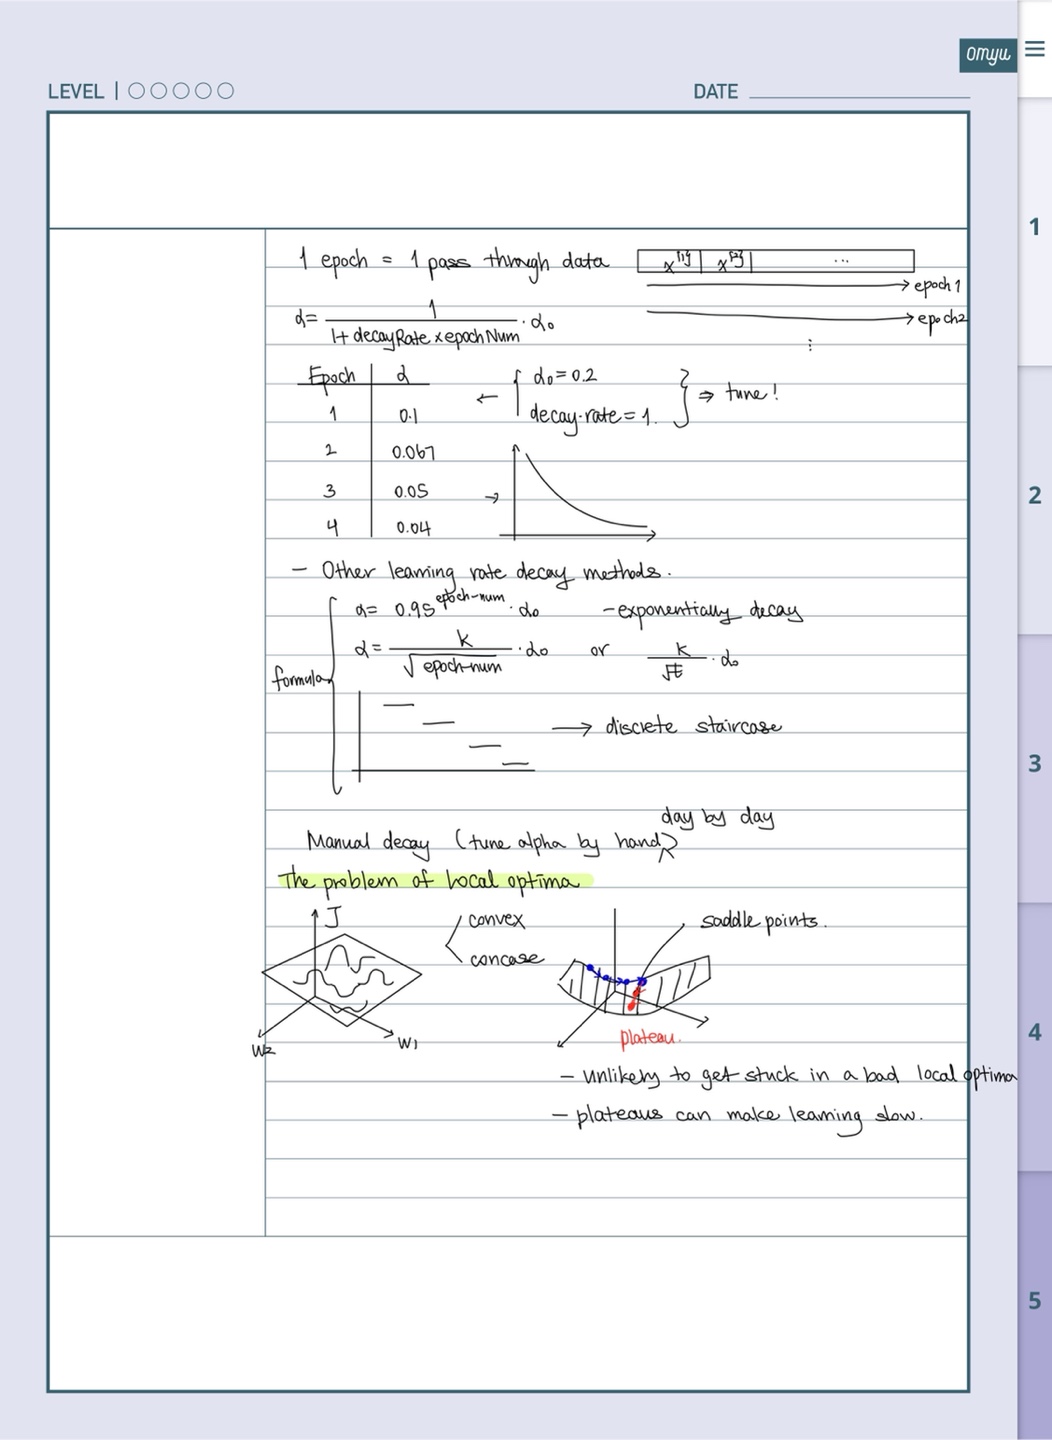 omyu
LEVEL | ○○○○○
DATE
1 epoch = 1 pass through data
x^{1} x^{2} ...
→ epoch 1
→ epoch2
⋮
α = 1 / (1 + decayRate × epochNum) · α₀
Epoch | α
1 | 0.1
2 | 0.067
3 | 0.05
4 | 0.04
← { α₀ = 0.2
decay-rate = 1. } ⇒ tune!
→
- Other learning rate decay methods.
formula
α = 0.95^epoch-num · α₀ - exponentially decay
α = k / √epoch-num · α₀ or k / √t · α₀
→ discrete staircase
day by day
Manual decay (tune alpha by hand)
The problem of local optima
J
W2
W1
convex
concase
saddle points.
plateau.
- unlikely to get stuck in a bad local optima
- plateaus can make learning slow.
1
2
3
4
5